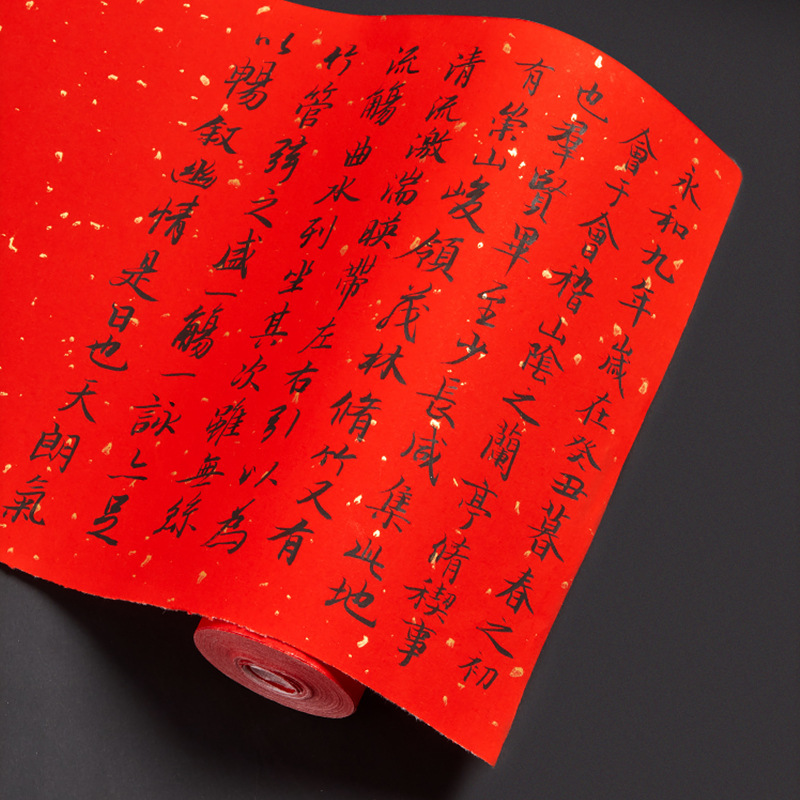 永和九年歲在癸丑暮春之初
會于會稽山陰之蘭亭脩稧事
也羣賢畢至少長咸集此地
有崇山峻領茂林脩竹又有
清流激湍暎帶左右引以為
流觴曲水列坐其次雖無絲
竹管弦之盛一觴一詠亦足
以暢敘幽情是日也天朗氣